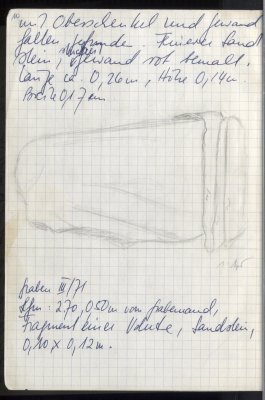 10
m. 2 Oberschenkel und Gewand
falten gefunden. Feinerer Sand
stein, Gewand rot bemalt.
Länge ca. 0,26m, Höhe 0,14m.
Breite 0,17m
Graben III/71
Lfm. 2.70, 0,50m vom Grabenrand,
Fragment einer Volute, Sandstein,
0,10 x 0,12m.